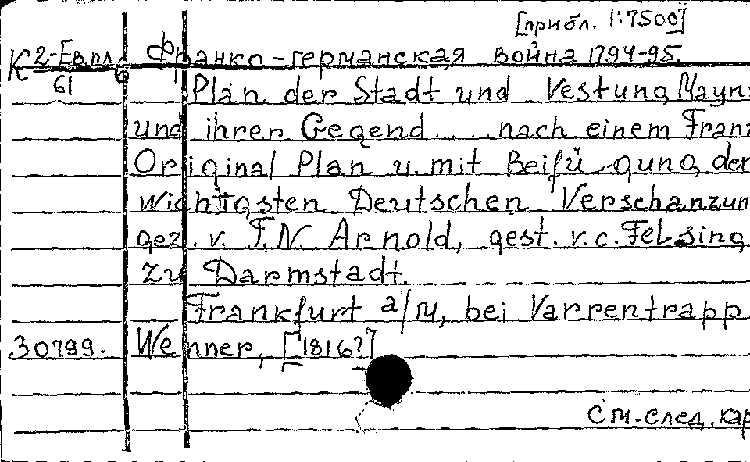 [прибл. 1:7500]
К 2-Европ. Франко-германская война 1794-95.
61 6
Plan der Stadt und Vestung Mayn
und ihrer Gegend ... nach einem Franz
Original Plan u. mit Beifügung der
wichtigsten Deutschen Verschanzun
gez. v. F.N. Arnold, gest. v. C. Felsing
zu Darmstadt.
Frankfurt a/M, bei Varrentrapp
30799. Wenner, [1816?]
См. след. кар